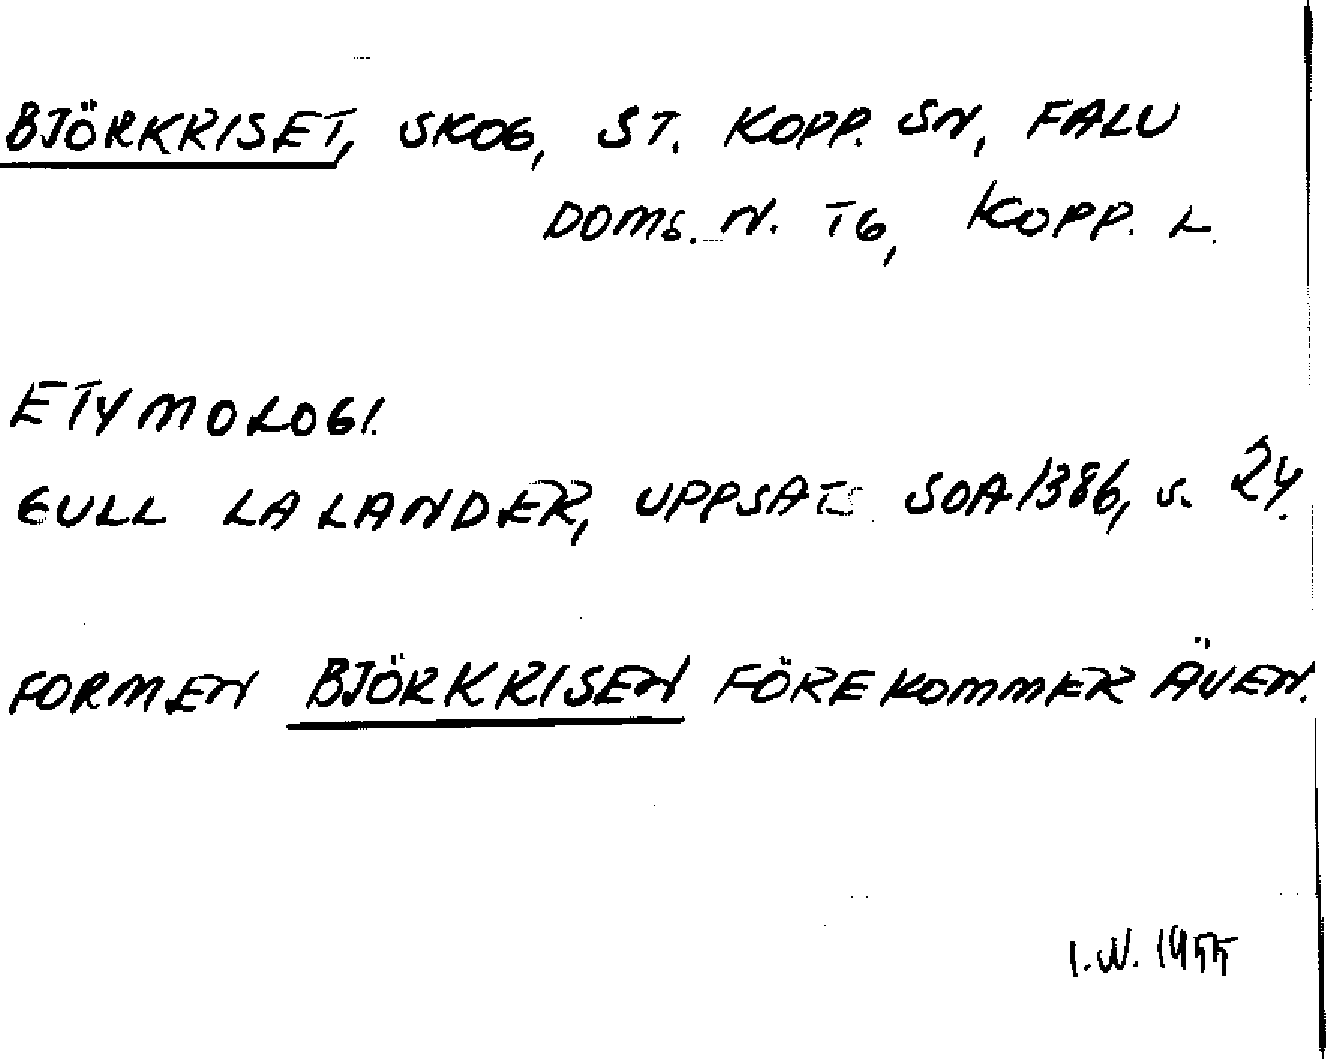 BJÖRKRISET, SKOG, ST. KOPP. SN, FALU
DOMS. N. TG, KOPP. L.
ETYMOLOGI.
GULL LALANDER, UPPSATS SOA 1386, s. 24.
FORMEN BJÖRKRISEN FÖREKOMMER ÄVEN.
I.W. 1955